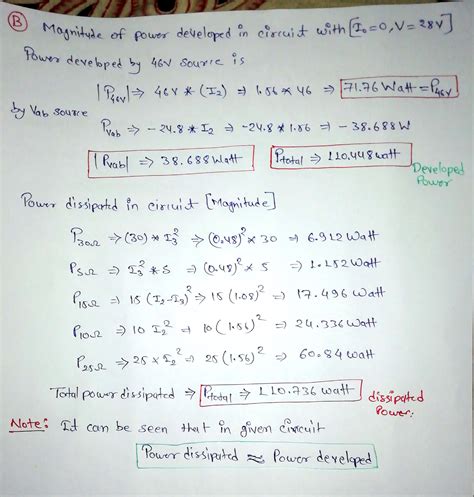 (B) Magnitude of power developed in circuit with [I₀=0, V=28V]
Power developed by 46V source is
|P46V| ⇒ 46V * (I2) ⇒ 1.56 * 46 ⇒ 71.76 Watt = P46V
by Vab source
PVab ⇒ -24.8 * I2 ⇒ -24.8 * 1.56 ⇒ -38.688 W
|PVab| ⇒ 38.688 Watt Ptotal ⇒ 110.448 watt
Developed
Power
Power dissipated in circuit [Magnitude]
P30Ω ⇒ (30) * I3² ⇒ (0.48)² * 30 ⇒ 6.912 Watt
P5Ω ⇒ I3² * 5 ⇒ (0.48)² * 5 ⇒ 1.152 Watt
P15Ω ⇒ 15 (I2-I3)² ⇒ 15 (1.08)² ⇒ 17.496 Watt
P10Ω ⇒ 10 I2² ⇒ 10 (1.56)² ⇒ 24.336 Watt
P25Ω ⇒ 25 * I2² ⇒ 25 (1.56)² ⇒ 60.84 watt
Total power dissipated ⇒ Ptotal ⇒ 110.736 watt
dissipated
Power:
Note: It can be seen that in given circuit
Power dissipated ≈ Power developed